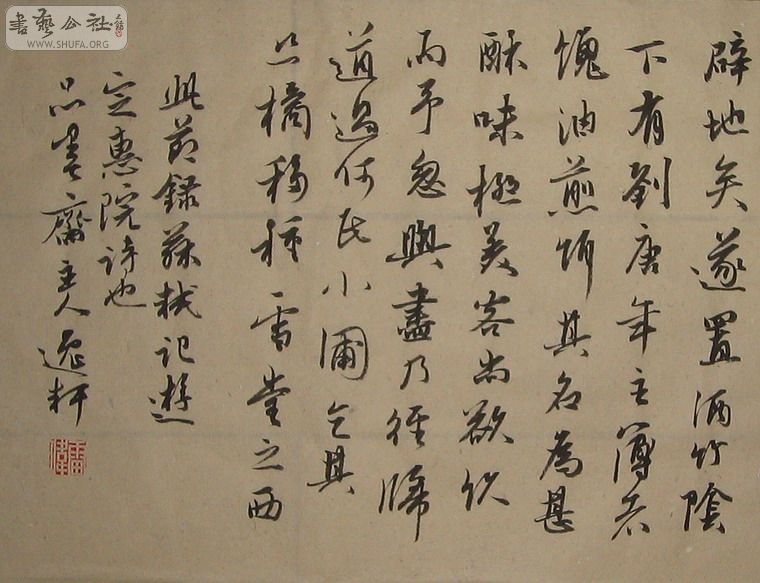 辟地矣遂置酒竹陰
下有劉唐年主簿者
餽油煎餌其名為甚
酥味極美客尚欲飲
而予忽興盡乃徑歸
道過何氏小圃乞其
丛橘移種雪堂之西
此節録蘇軾記遊
定惠院詩也
品書齋主人逸軒
書藝公社
WWW.SHUFA.ORG